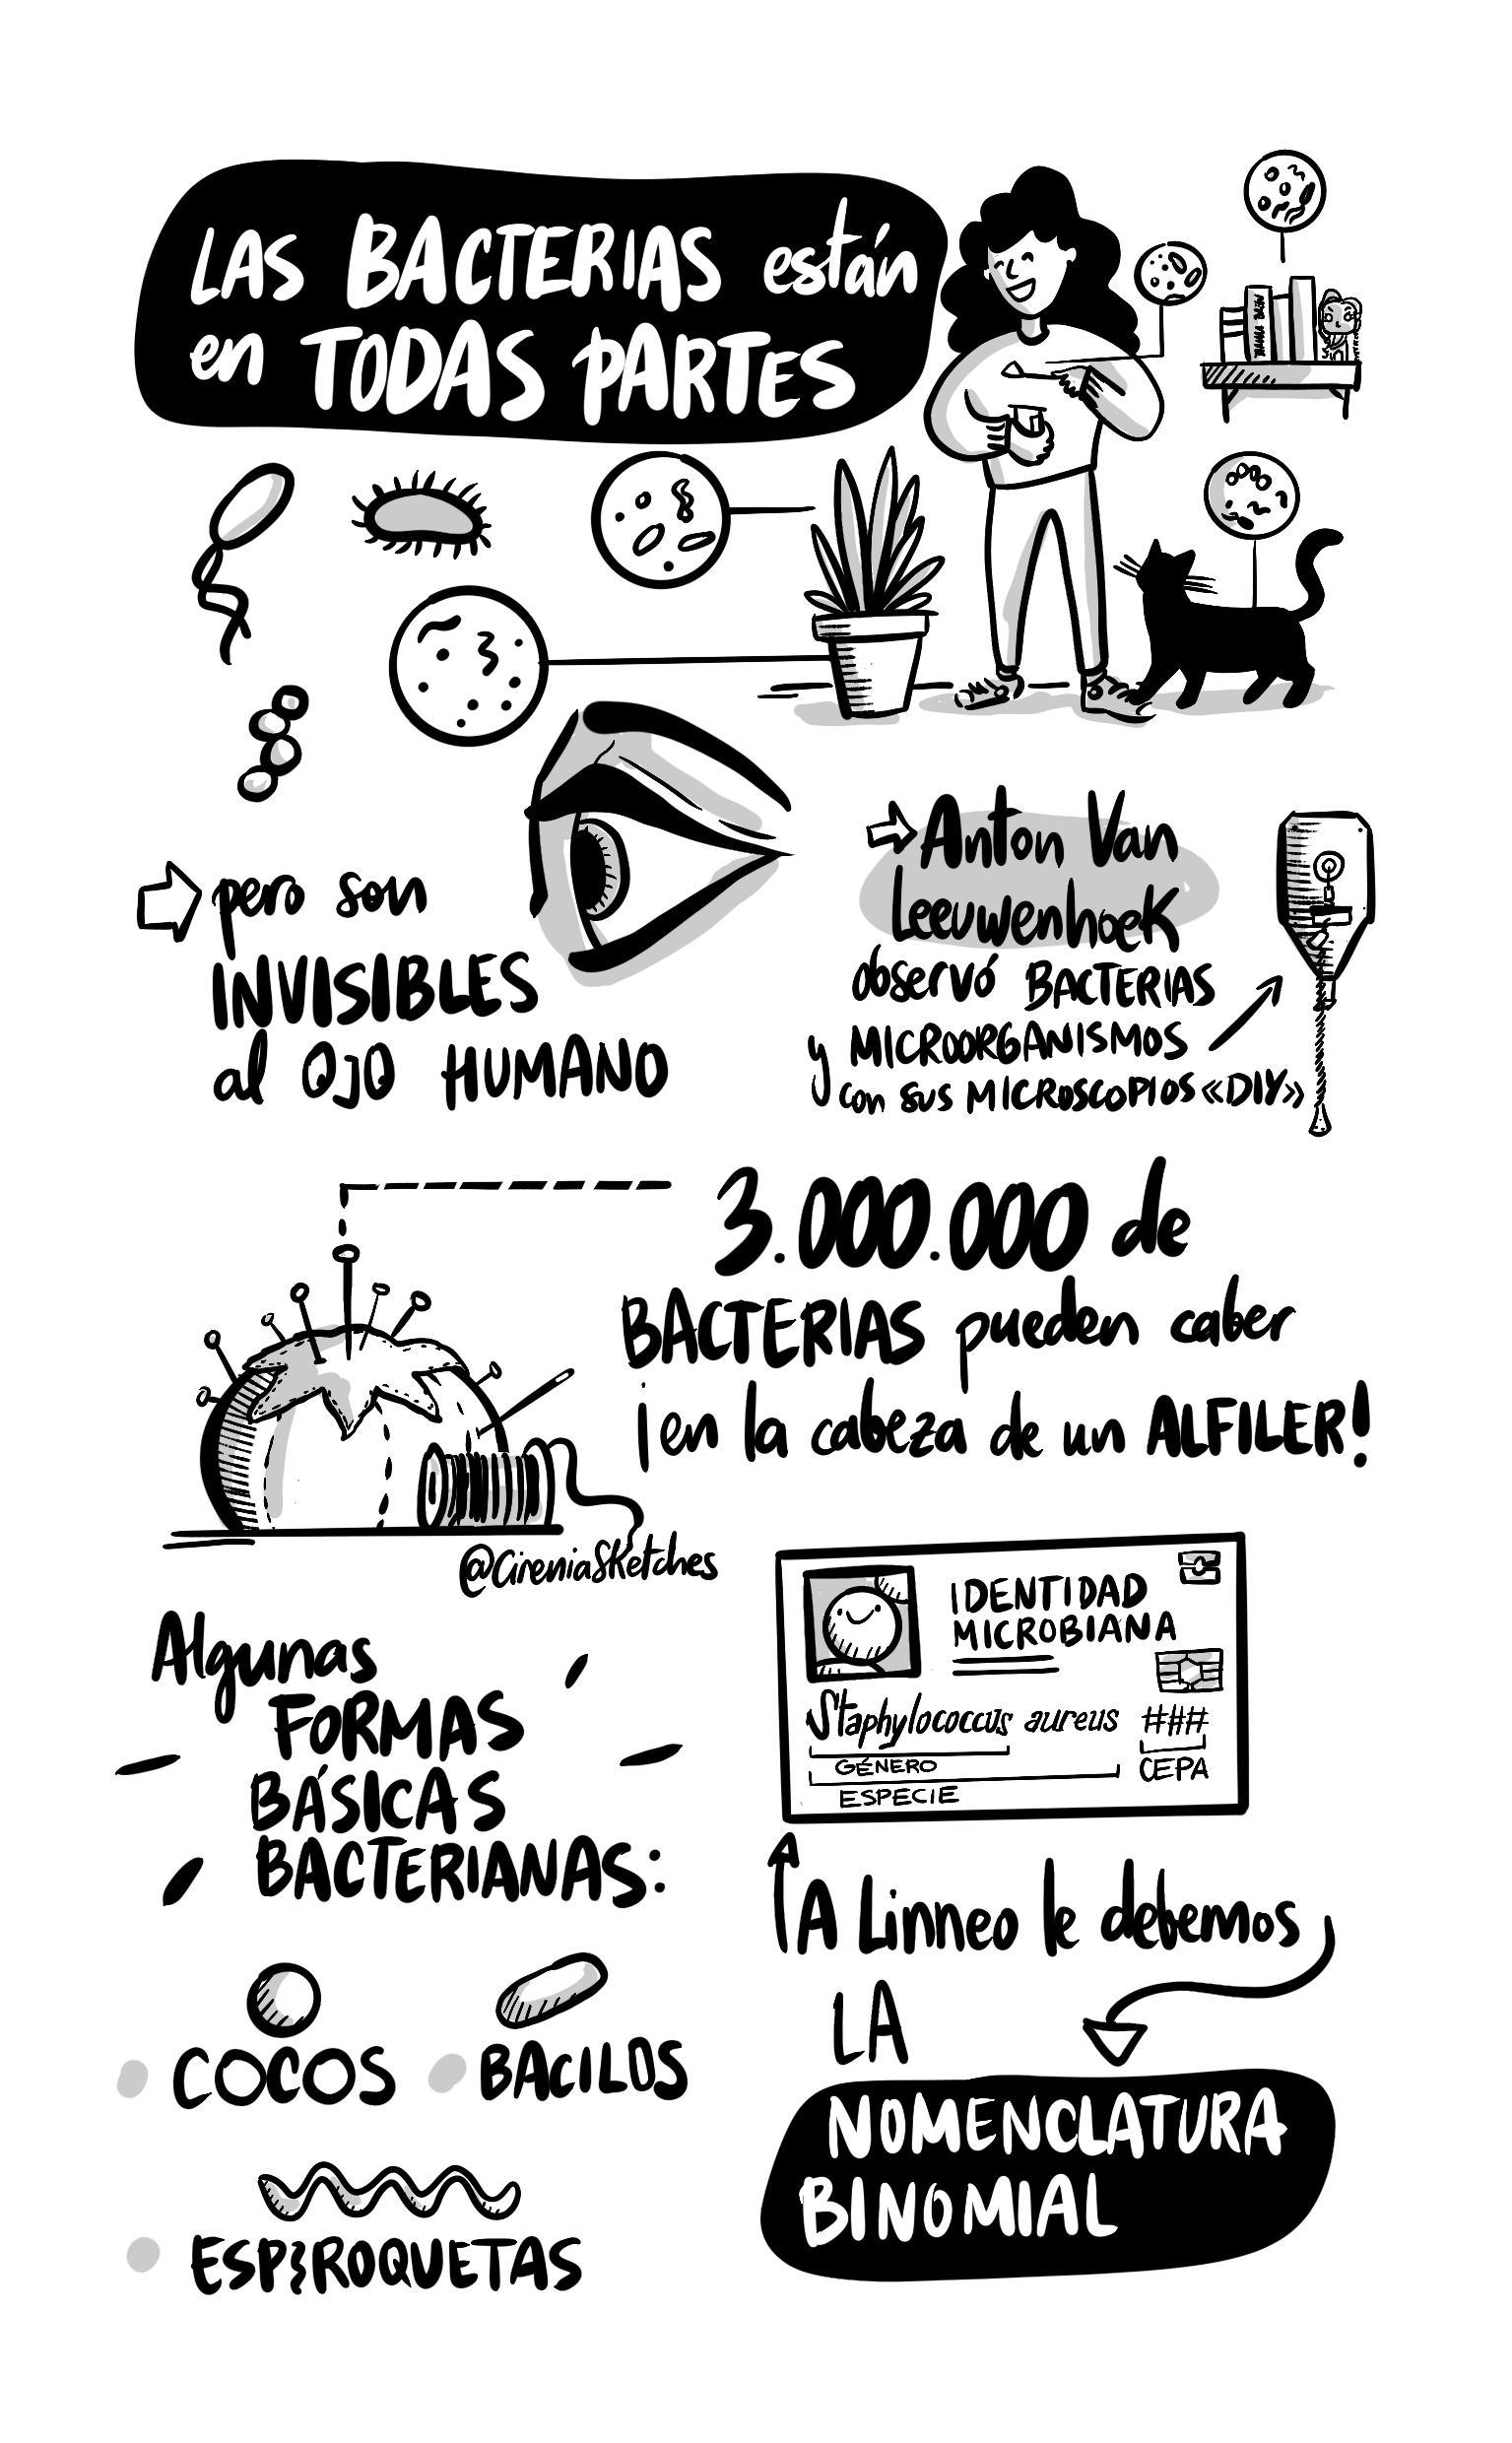 LAS BACTERIAS están
en TODAS PARTES
pero son
INVISIBLES
al OJO HUMANO
Anton Van
Leeuwenhoek
observó BACTERIAS
y MICROORGANISMOS
con sus MICROSCOPIOS «DIY»
3.000.000 de
BACTERIAS pueden caber
¡en la cabeza de un ALFILER!
@CireniaSketches
Algunas
FORMAS
BÁSICAS
BACTERIANAS:
COCOS
BACILOS
ESPIROQUETAS
IDENTIDAD
MICROBIANA
Staphylococcus aureus ###
GÉNERO
CEPA
ESPECIE
A Linneo le debemos
LA
NOMENCLATURA
BINOMIAL